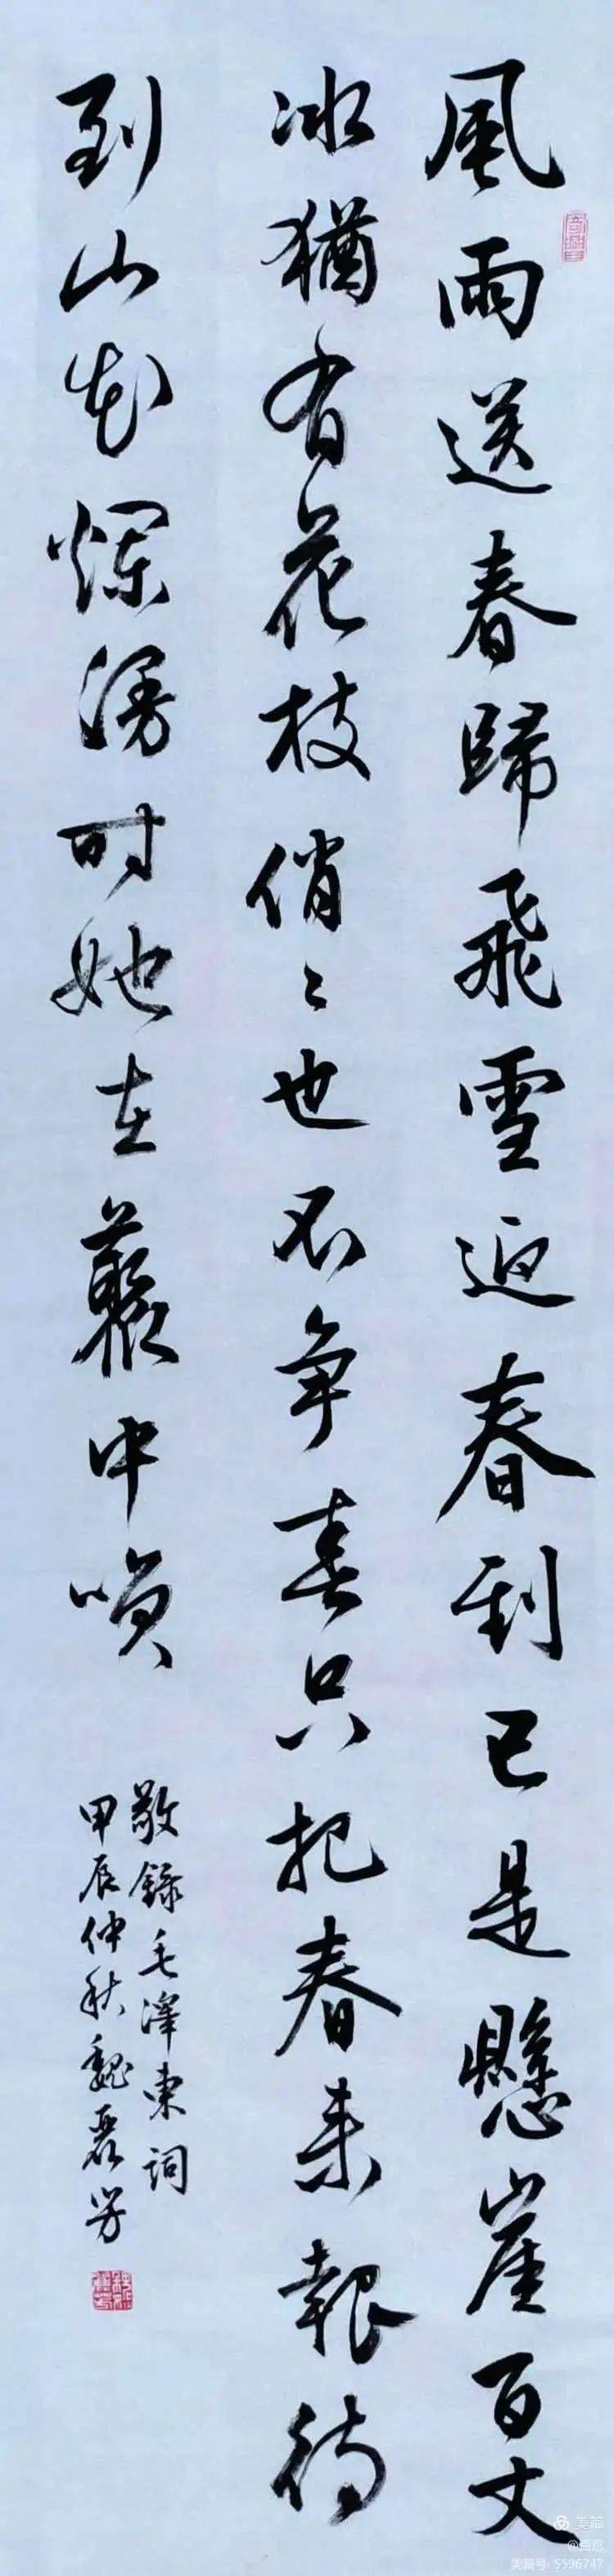 風雨送春歸飛雪迎春到已是懸崖百丈
冰猶有花枝俏〻也不争春只把春来報待
到山花爛漫时她在藂中咲
敬録毛澤東詞
甲辰仲秋魏麗芳
美篇
美篇号: 5596747